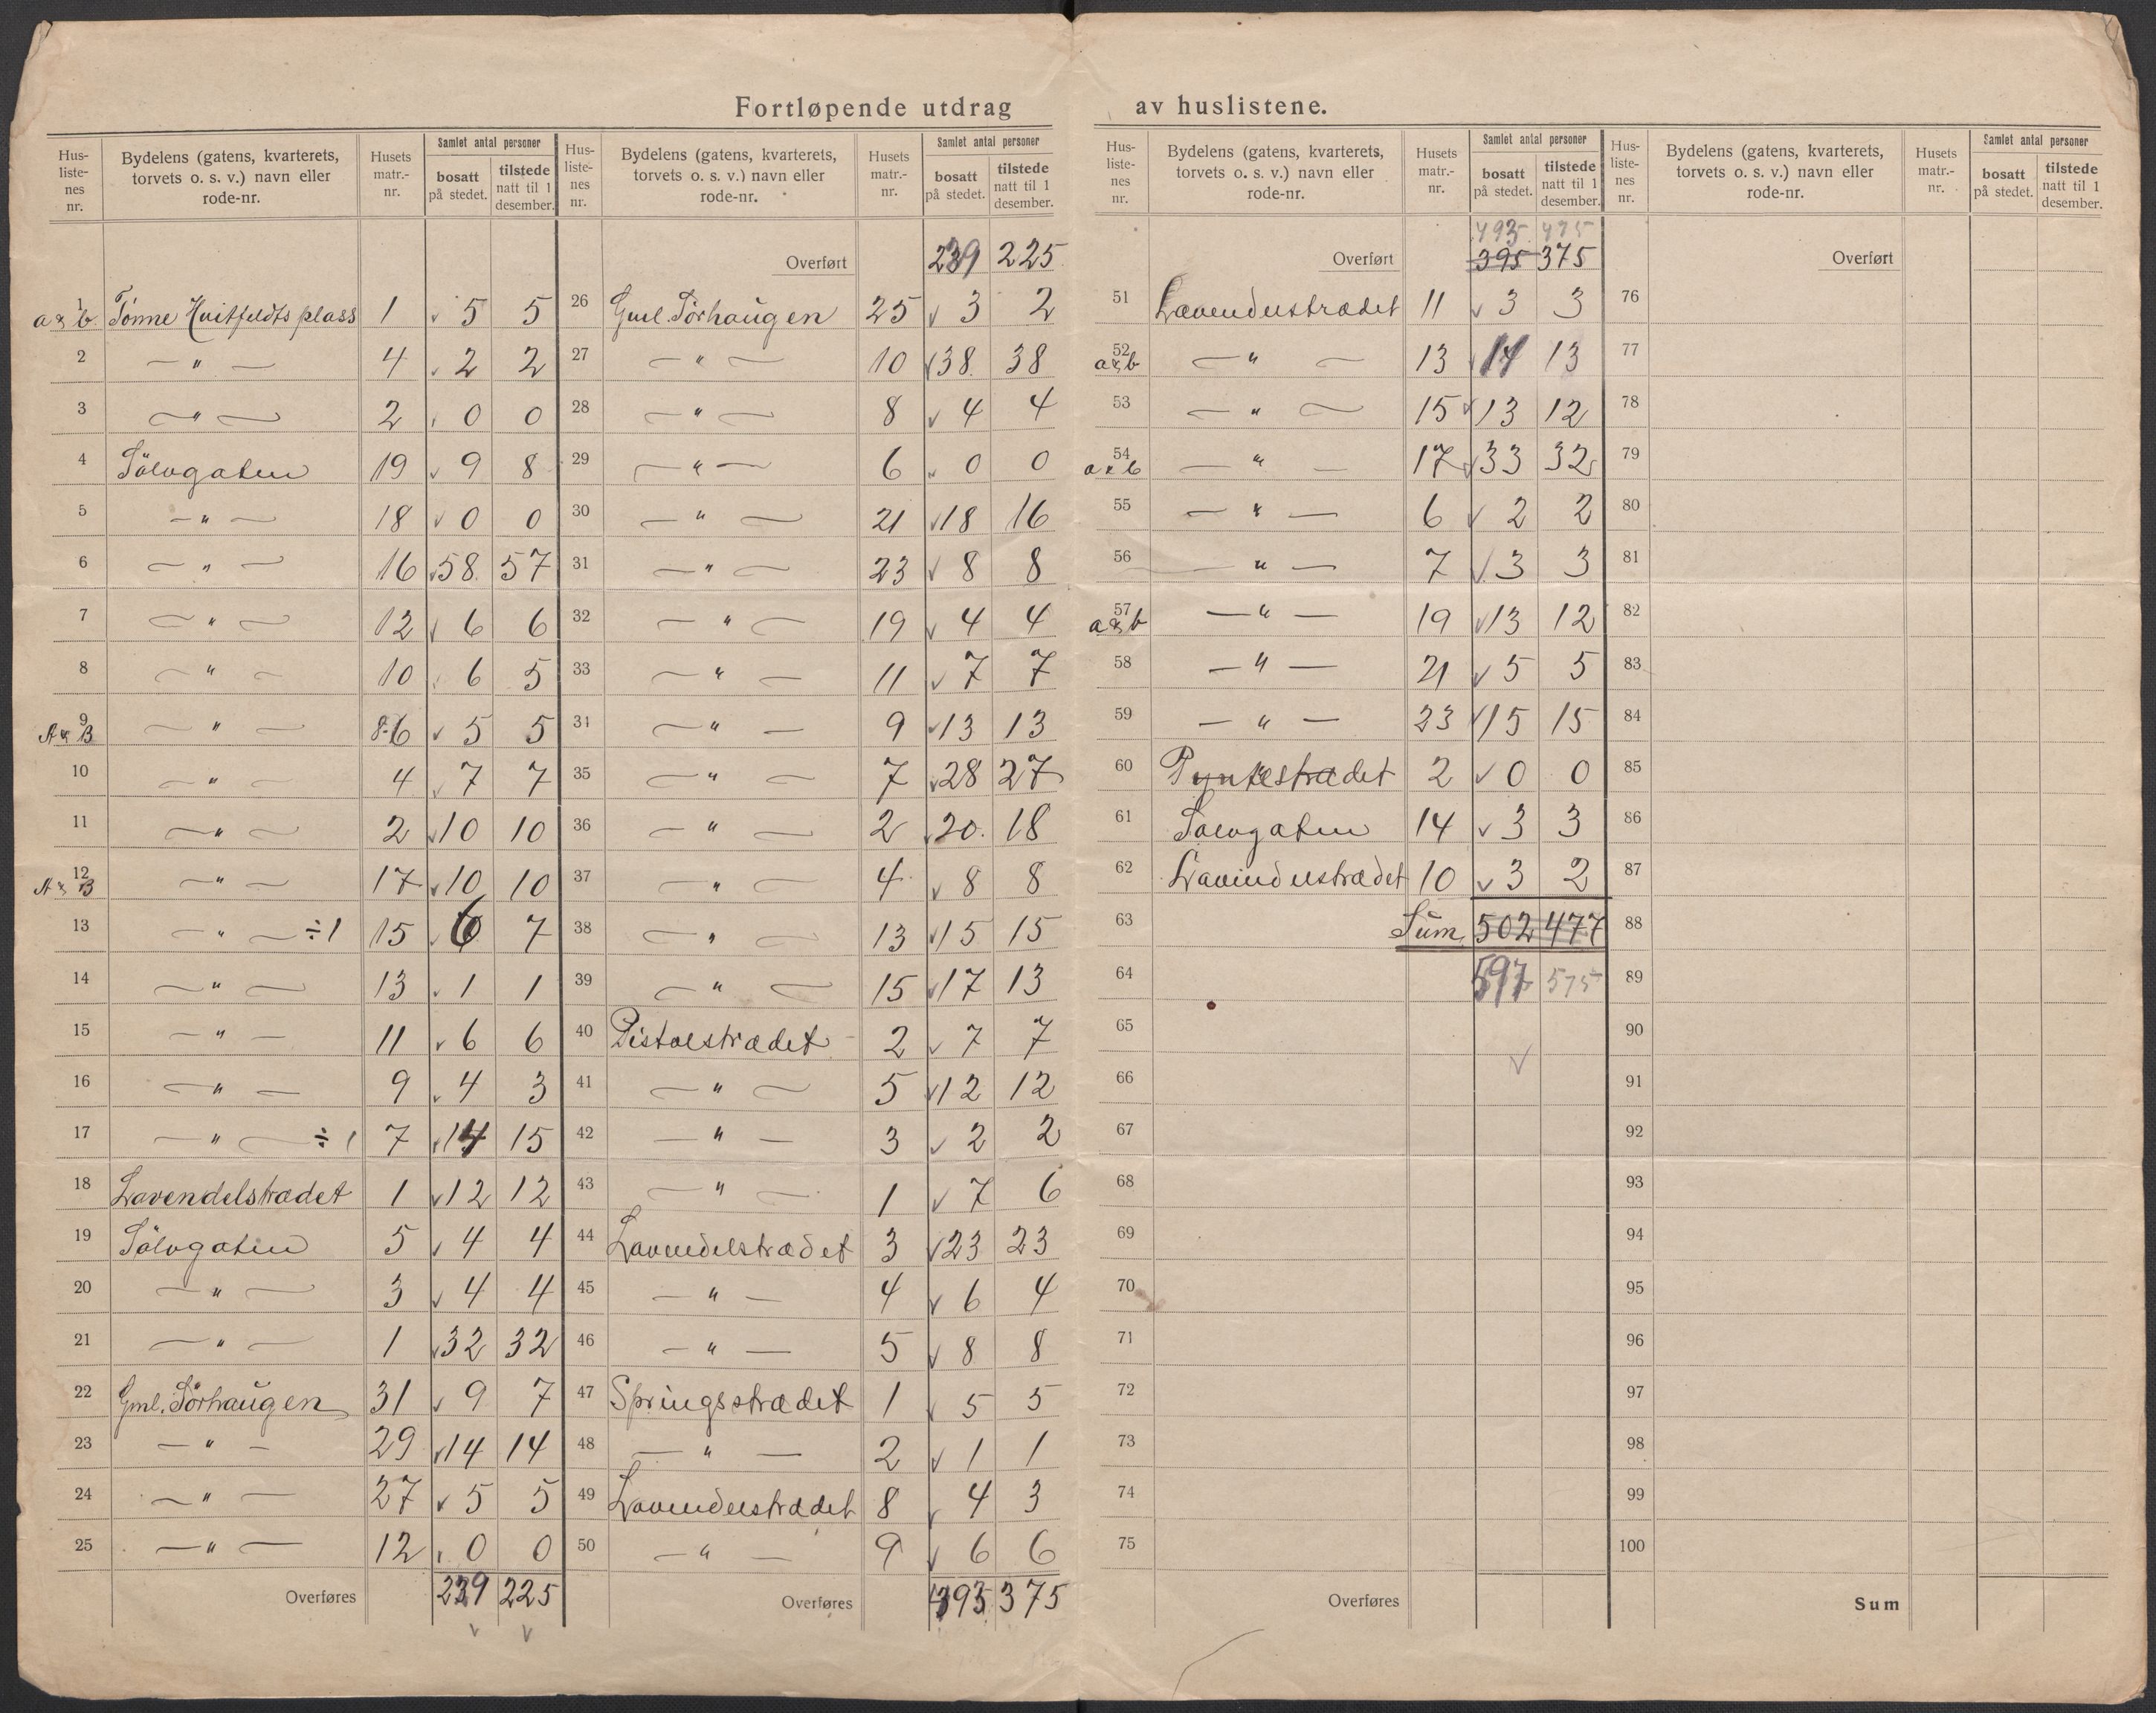 Fortløpende utdrag av huslistene.
Hus-listenes nr. | Bydelens (gatens, kvarterets, torvets o. s. v.) navn eller rode-nr. | Husets matr.-nr. | Samlet antal personer bosatt på stedet. | tilstede natt til 1 desember.
1 a & b | Tønne Huitfeldts plass | 1 | 5 | 5
2 | — " — | 4 | 2 | 2
3 | — " — | 2 | 0 | 0
4 | Sölvgaten | 19 | 9 | 8
5 | — " — | 18 | 0 | 0
6 | — " — | 16 | 58 | 57
7 | — " — | 12 | 6 | 6
8 | — " — | 10 | 6 | 5
9 A & B | — " — | 8-6 | 5 | 5
10 | — " — | 4 | 7 | 7
11 | — " — | 2 | 10 | 10
12 A & B | — " — | 17 | 10 | 10
13 | — " — ÷1 | 15 | 6 | 7
14 | — " — | 13 | 1 | 1
15 | — " — | 11 | 6 | 6
16 | — " — | 9 | 4 | 3
17 | — " — ÷1 | 7 | 14 | 15
18 | Lavendelstrædet | 1 | 12 | 12
19 | Sölvgaten | 5 | 4 | 4
20 | — " — | 3 | 4 | 4
21 | — " — | 1 | 32 | 32
22 | Gml. Sörhaugen | 31 | 9 | 7
23 | — " — | 29 | 14 | 14
24 | — " — | 27 | 5 | 5
25 | — " — | 12 | 0 | 0
Overføres | 229 | 225
Hus-listenes nr. | Bydelens (gatens, kvarterets, torvets o. s. v.) navn eller rode-nr. | Husets matr.-nr. | Samlet antal personer bosatt på stedet. | tilstede natt til 1 desember.
Overført | 229 | 225
26 | Gml. Sörhaugen | 25 | 3 | 2
27 | — " — | 10 | 38 | 38
28 | — " — | 8 | 4 | 4
29 | — " — | 6 | 0 | 0
30 | — " — | 21 | 18 | 16
31 | — " — | 23 | 8 | 8
32 | — " — | 19 | 4 | 4
33 | — " — | 11 | 7 | 7
34 | — " — | 9 | 13 | 13
35 | — " — | 7 | 28 | 27
36 | — " — | 2 | 20 | 18
37 | — " — | 4 | 8 | 8
38 | — " — | 13 | 15 | 15
39 | — " — | 15 | 17 | 13
40 | Pistolstrædet | 2 | 7 | 7
41 | — " — | 5 | 12 | 12
42 | — " — | 3 | 2 | 2
43 | — " — | 1 | 7 | 6
44 | Lavendelstrædet | 3 | 23 | 23
45 | — " — | 4 | 6 | 4
46 | — " — | 5 | 8 | 8
47 | Springsstrædet | 1 | 5 | 5
48 | — " — | 2 | 1 | 1
49 | Lavendelstrædet | 8 | 4 | 3
50 | — " — | 9 | 6 | 6
Overføres | 393 | 375
Hus-listenes nr. | Bydelens (gatens, kvarterets, torvets o. s. v.) navn eller rode-nr. | Husets matr.-nr. | Samlet antal personer bosatt på stedet. | tilstede natt til 1 desember.
493 475
Overført | 395 | 375
51 | Lavendelstrædet | 11 | 3 | 3
52 a & b | — " — | 13 | 14 | 13
53 | — " — | 15 | 13 | 12
54 a & b | — " — | 17 | 33 | 32
55 | — " — | 6 | 2 | 2
56 | — " — | 7 | 3 | 3
57 a & b | — " — | 19 | 13 | 12
58 | — " — | 21 | 5 | 5
59 | — " — | 23 | 15 | 15
60 | Pyntestrædet | 2 | 0 | 0
61 | Sølvgaten | 14 | 3 | 3
62 | Lavendelstrædet | 10 | 3 | 2
63 | Sum | 502 | 477
64 | 597 | 575
65
66
67
68
69
70
71
72
73
74
75
Overføres
Hus-listenes nr. | Bydelens (gatens, kvarterets, torvets o. s. v.) navn eller rode-nr. | Husets matr.-nr. | Samlet antal personer bosatt på stedet. | tilstede natt til 1 desember.
Overført
76
77
78
79
80
81
82
83
84
85
86
87
88
89
90
91
92
93
94
95
96
97
98
99
100
Sum